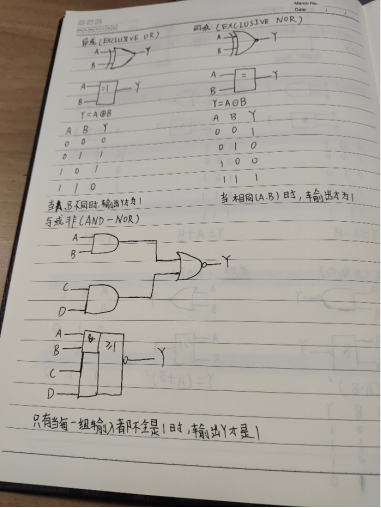 Memo No.
Date
异或(EXCLUSIVE OR)
A
B
Y
A
B
=1
Y
Y=A⊕B
A B Y
0 0 0
0 1 1
1 0 1
1 1 0
当A.B不同时,输出Y才为1
同或(EXCLUSIVE NOR)
A
B
Y
A
B
=
Y
Y=A⊙B
A B Y
0 0 1
0 1 0
1 0 0
1 1 1
当相同(A.B)时,输出才为1
与或非(AND-NOR)
A
B
C
D
Y
A
B
C
D
&
≥1
Y
只有当每一组输入都不全是1时,输出Y才是1